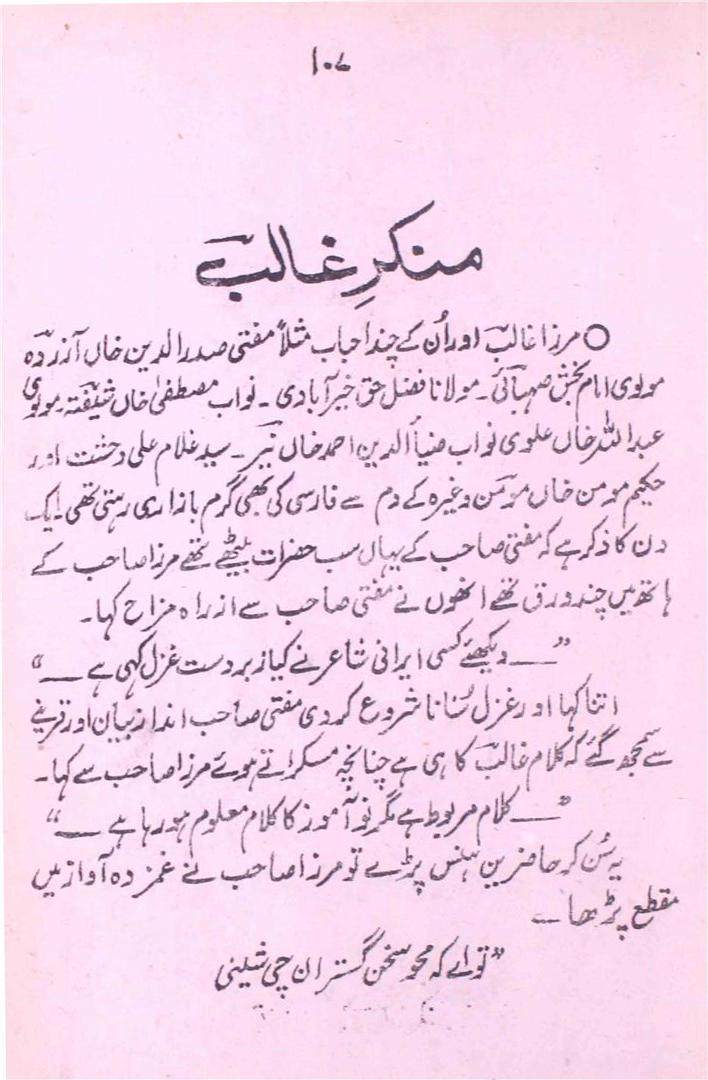 ۱۰۷
منکرِ غالبؔ
○ مرزا غالبؔ اور اُن کے چند احباب مثلاً مفتی صدر الدین خاں آزردہؔ
مولوی امام بخش صہبائیؔ۔ مولانا فضل حق خیر آبادی۔ نواب مصطفیٰ خاں شیفتہؔ۔ مولوی
عبداللہ خاں علوی نواب ضیاءُ الدین احمد خاں نیّرؔ۔ سید غلام علی وحشت اور
حکیم مومن خاں مومنؔ وغیرہ کے دم سے فارسی کی بھی گرم بازاری رہتی تھی۔ ایک
دن کا ذکر ہے کہ مفتی صاحب کے یہاں سب حضرات بیٹھے تھے مرزا صاحب کے
ہاتھ میں چند ورق تھے انھوں نے مفتی صاحب سے از راہ مزاح کہا۔
”— دیکھئے کسی ایرانی شاعر نے کیا زبردست غزل کہی ہے —“
اتنا کہا اور غزل سُنانا شروع کر دی مفتی صاحب انداز بیان اور قرینے
سے سمجھ گئے کہ کلام غالبؔ کا ہی ہے چنانچہ مسکراتے ہوئے مرزا صاحب سے کہا۔
”— کلام مربوط ہے مگر نو آموز کا کلام معلوم ہو رہا ہے —“
یہ سُن کر حاضرین ہنس پڑے تو مرزا صاحب نے غمزدہ آواز میں
مقطع پڑھا —
”تو اے کہ محو سخن گستران پیشینی